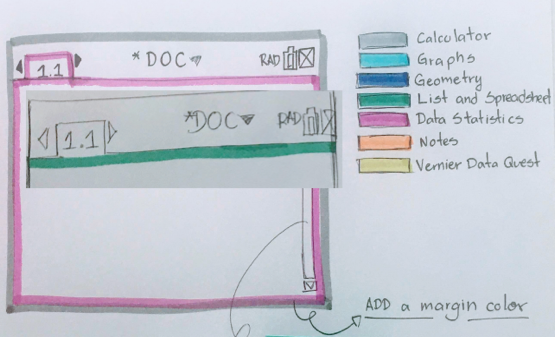 1.1
*DOC
RAD
1.1
*DOC
RAD
Calculator
Graphs
Geometry
List and Spreadsheet
Data Statistics
Notes
Vernier Data Quest
ADD a margin color